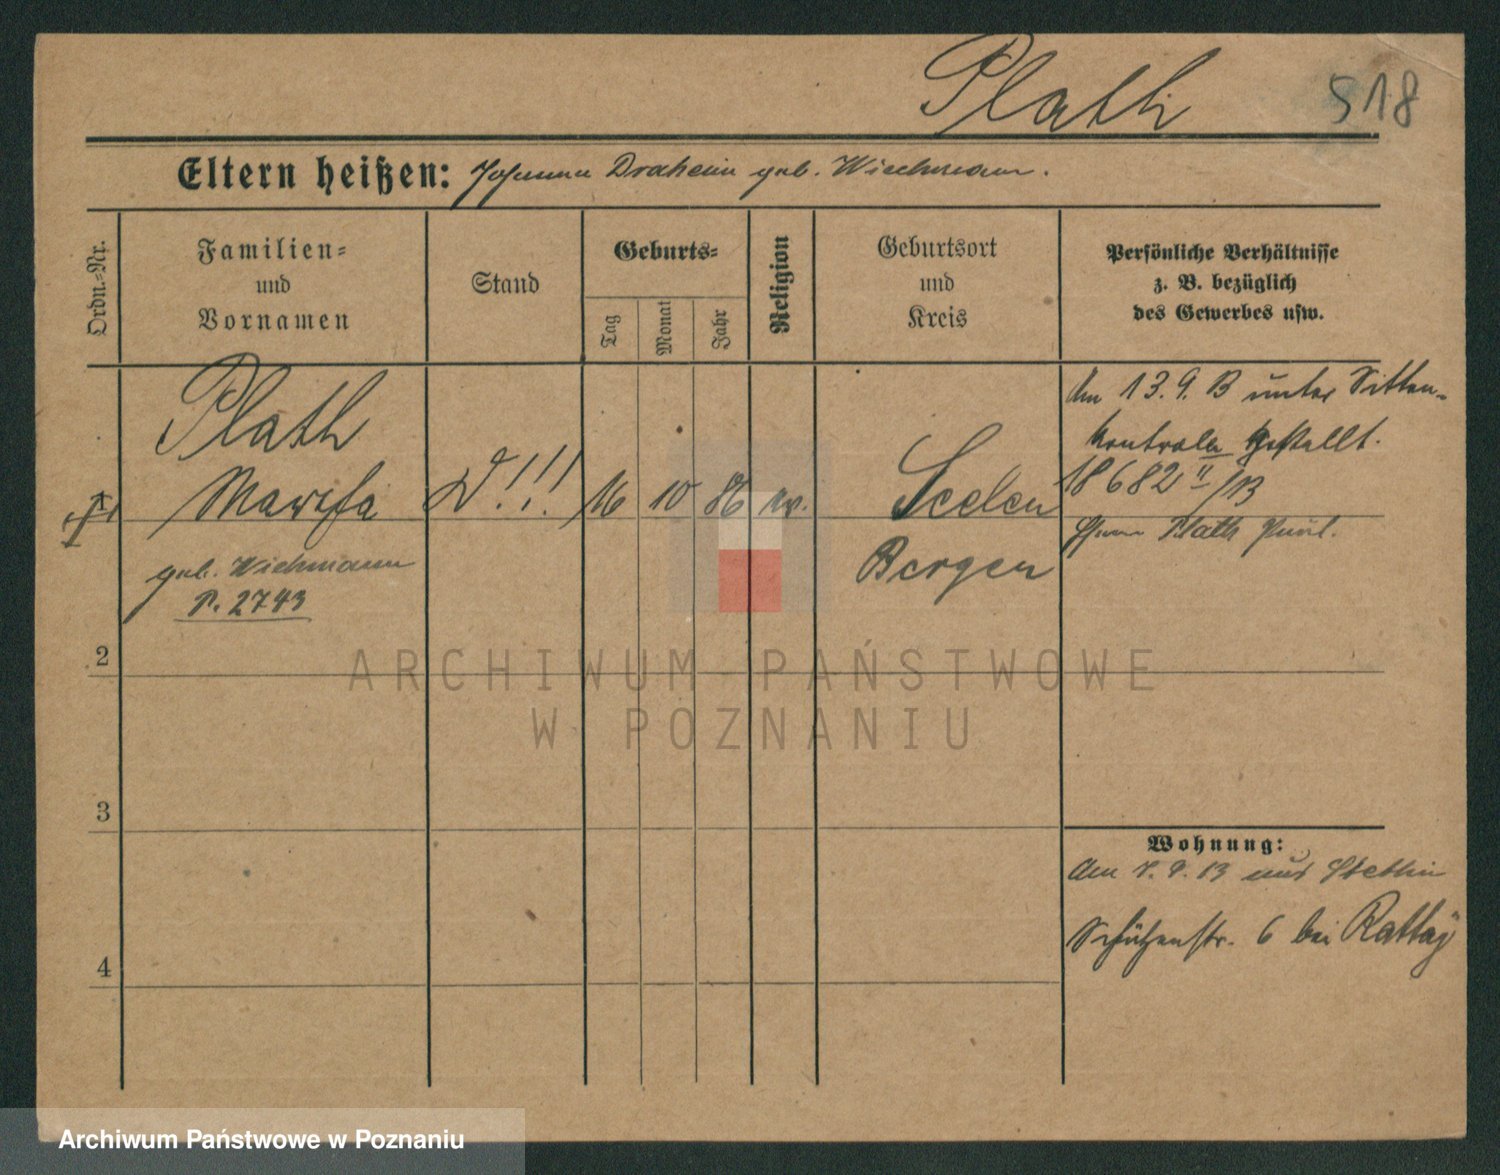 Plath
518
Eltern heißen: Johanna Draheim geb. Wiechmann.
Ordn.-Nr.
Familien-
und
Vornamen
Stand
Geburts-
Tag
Monat
Jahr
Religion
Geburtsort
und
Kreis
Persönliche Verhältnisse
z. B. bezüglich
des Gewerbes usw.
Plath
Martha
geb. Wichmann
P. 2743
D!!!
16
10
86
ev.
Seelen
Bergen
Am 13. 9. 13 unter Sitten-
kontrolle gestellt.
18682 II/13
Plath
1
2
3
4
Wohnung:
Am 7. 9. 13 aus Stettin
Schützenstr. 6 bei Rattay
ARCHIWUM PAŃSTWOWE
W POZNANIU
Archiwum Państwowe w Poznaniu